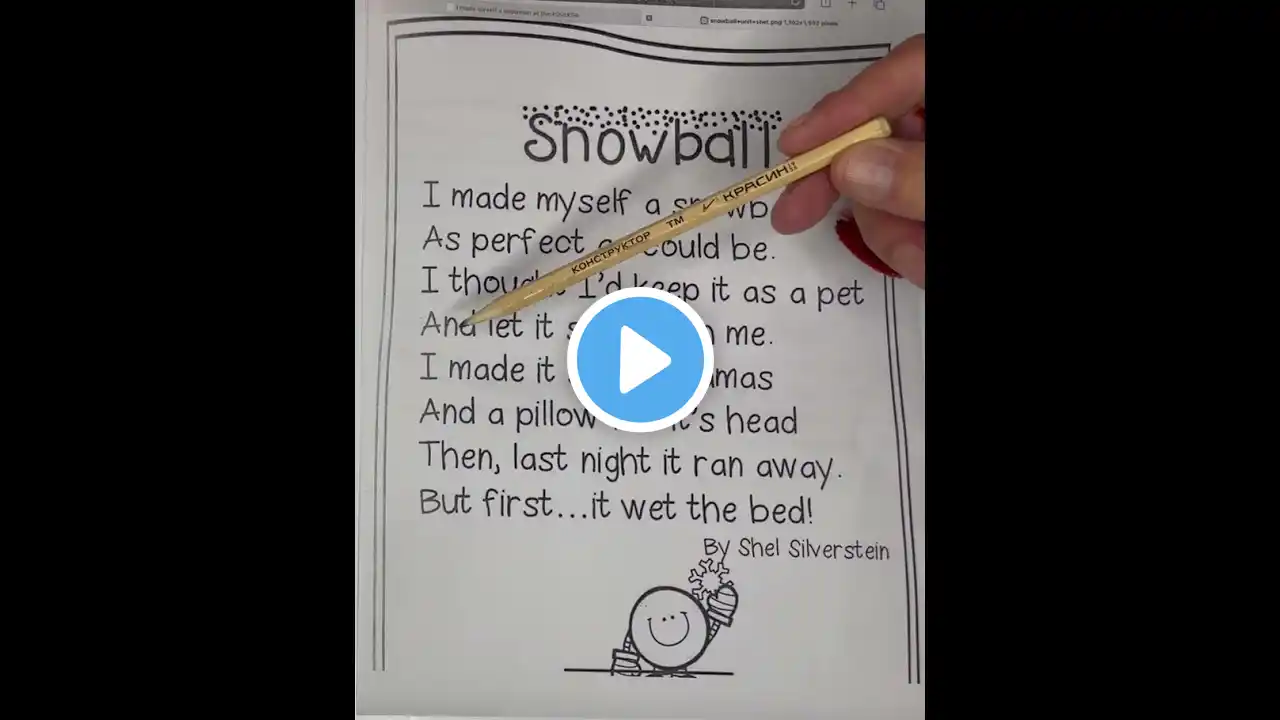 Snowball
I made myself a
As perfect could be.
I thought I'd keep it as a pet
And let it me.
I made it
And a pillow it's head
Then, last night it ran away.
But first...it wet the bed!
By Shel Silverstein
КОНСТРУКТОР ТМ КРАСИН